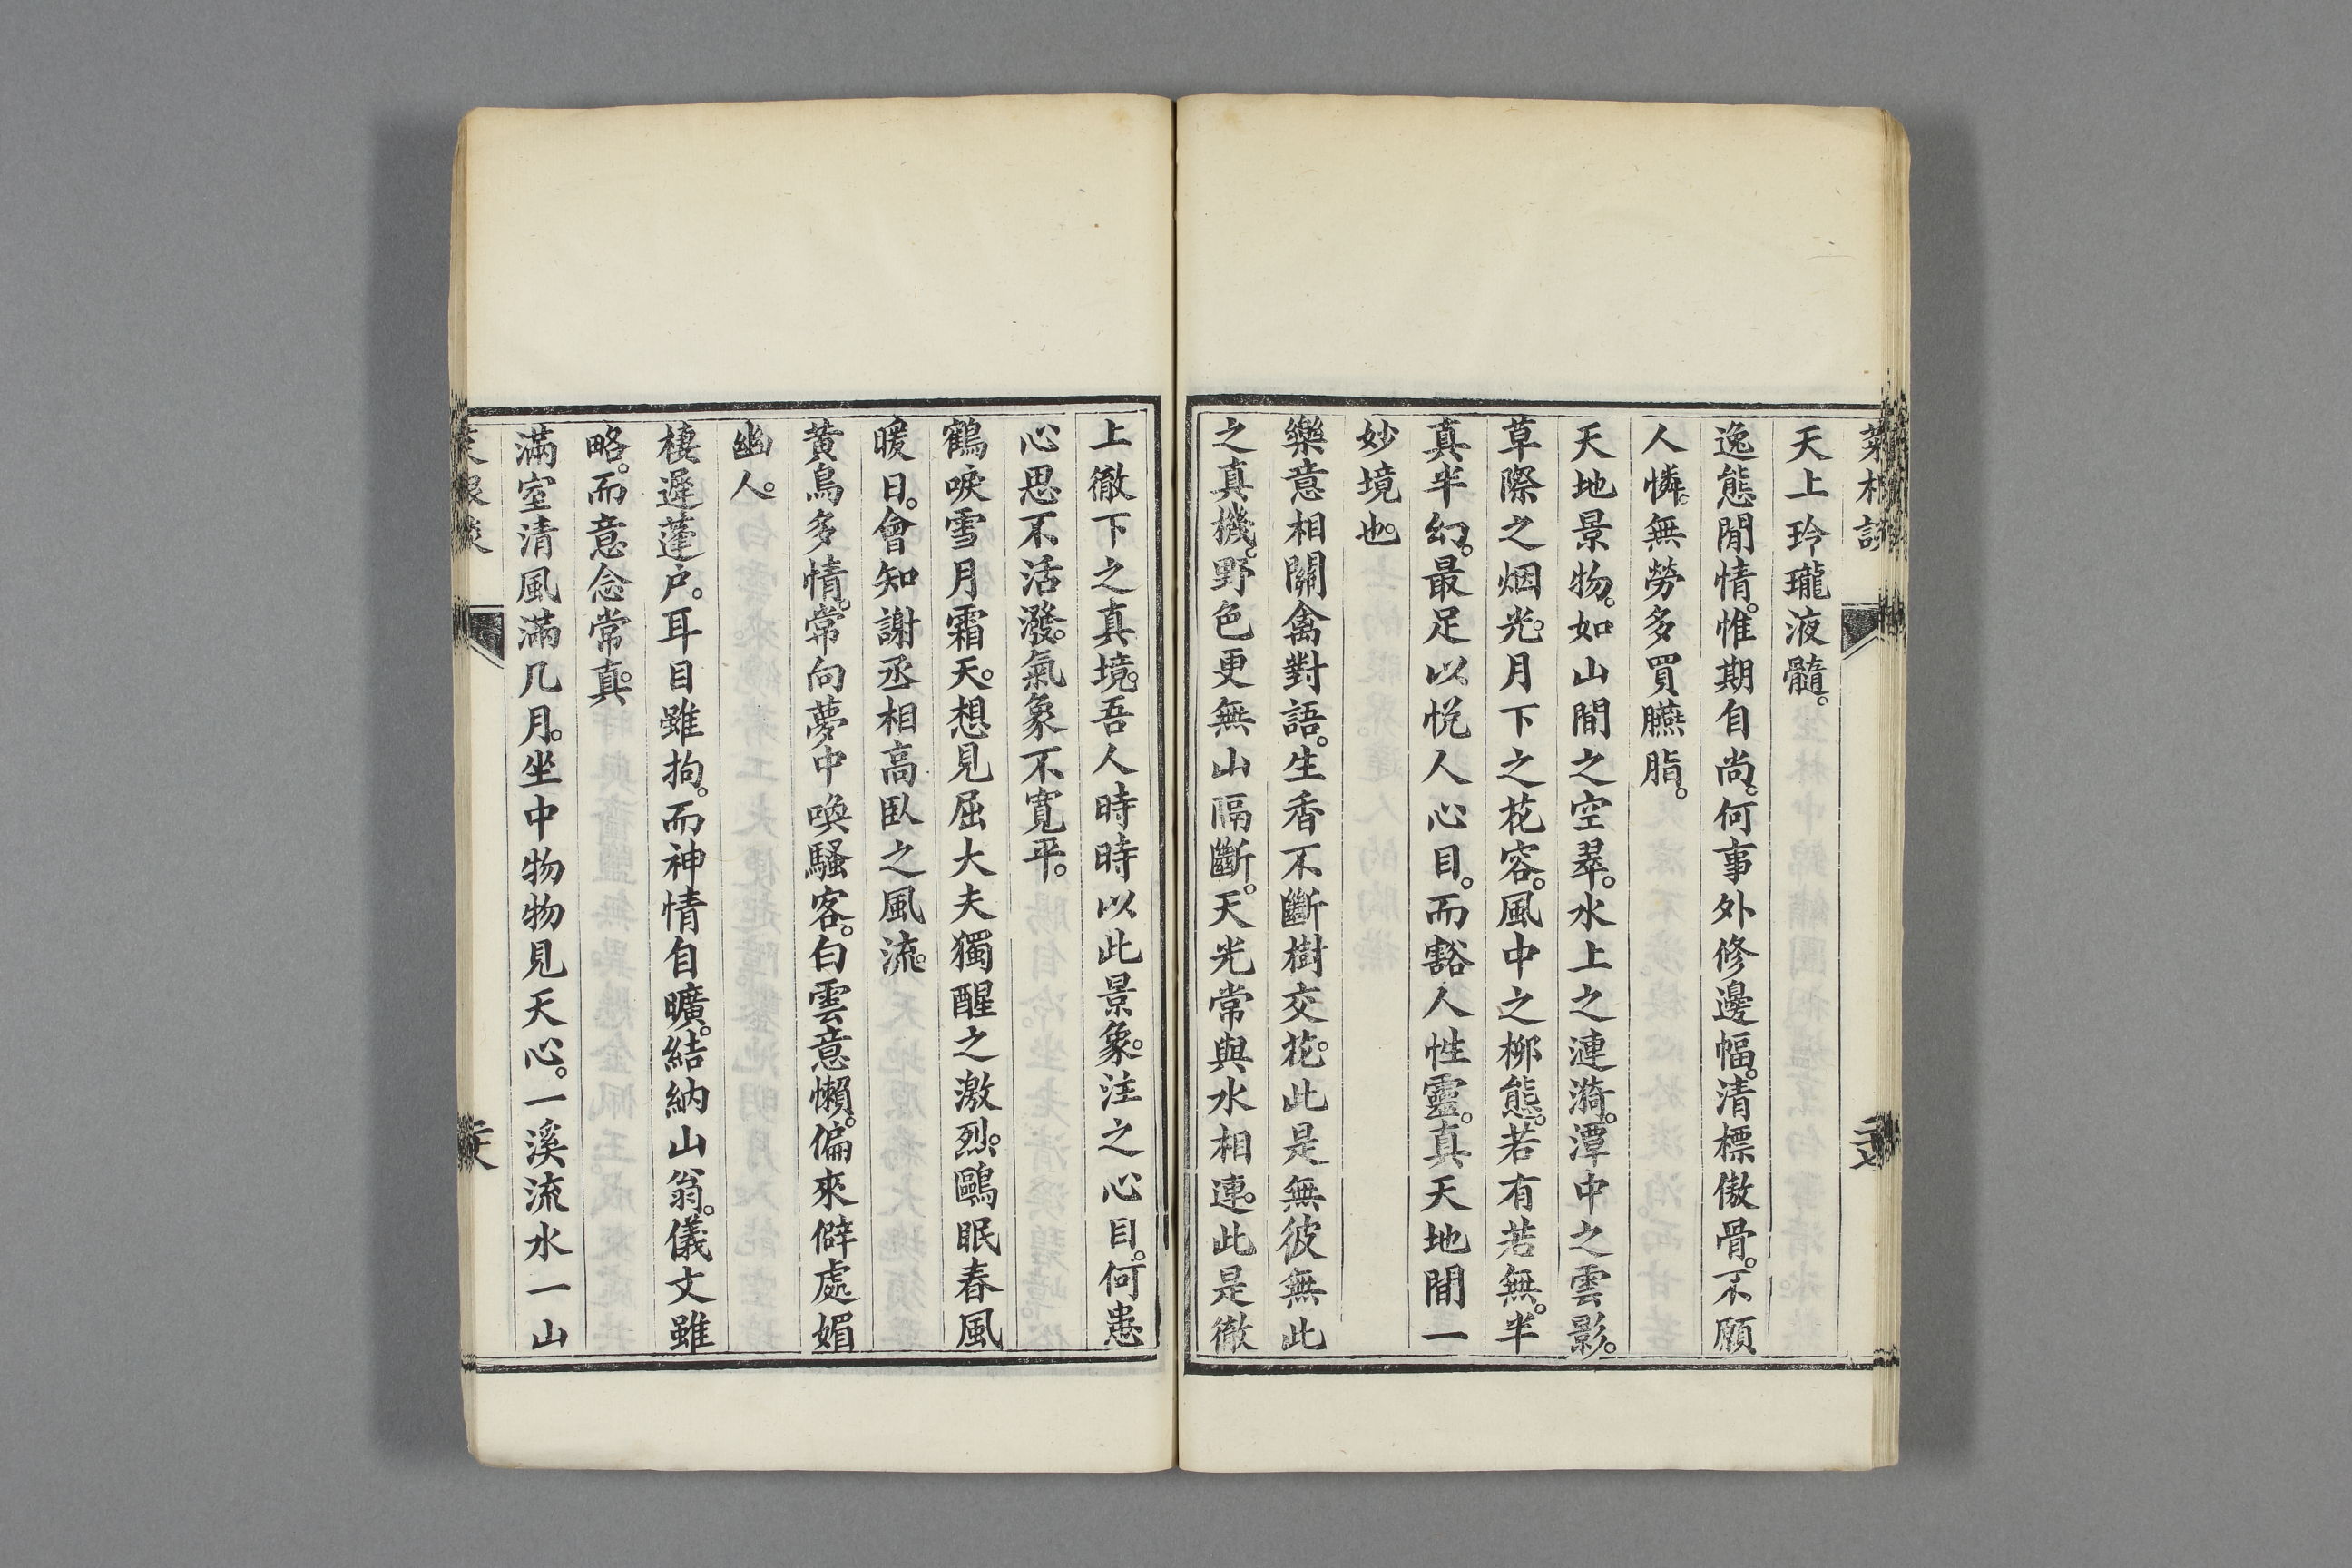 天上玲瓏液髓。
逸態閒情。惟期自尚。何事外修邊幅。清標傲骨。不願
人憐。無勞多買臙脂。
天地景物。如山間之空翠。水上之漣漪。潭中之雲影。
草際之烟光。月下之花容。風中之柳態。若有若無。半
真半幻。最足以悅人心目。而豁人性靈。真天地間一
妙境也。
樂意相關禽對語。生香不斷樹交花。此是無彼無此
之真機。野色更無山隔斷。天光常與水相連。此是徹
上徹下之真境。吾人時時以此景象。注之心目。何患
心思不活潑。氣象不寬平。
鶴唳雪月霜天。想見屈大夫獨醒之激烈。鷗眠春風
暖日。會知謝丞相高臥之風流。
黃鳥多情。常向夢中喚騷客。白雲意懶。偏來僻處媚
幽人。
棲遲蓬户。耳目雖拘。而神情自曠。結納山翁。儀文雖
略。而意念常真。
滿室清風滿几月。坐中物物見天心。一溪流水一山